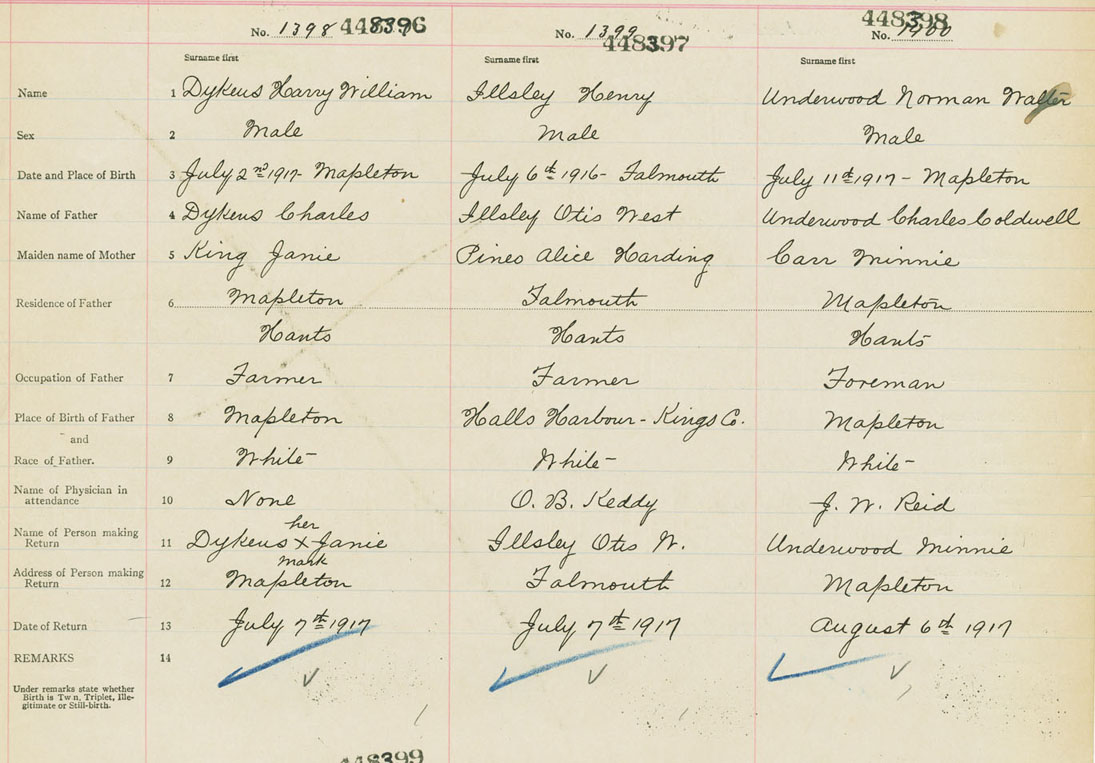 No. 1398 448396 No. 1399 448397 No. 1400 448398
Surname first Surname first Surname first
Name 1 Dykens Harry William Illsley Henry Underwood Norman Walter
Sex 2 Male Male Male
Date and Place of Birth 3 July 2nd 1917- Mapleton July 6th 1916- Falmouth July 11th 1917- Mapleton
Name of Father 4 Dykens Charles Illsley Otis West Underwood Charles Coldwell
Maiden name of Mother 5 King Janie Pineo Alice Harding Carr Minnie
Residence of Father 6 Mapleton Falmouth Mapleton
Hants Hants Hants
Occupation of Father 7 Farmer Farmer Foreman
Place of Birth of Father 8 Mapleton Halls Harbour - Kings Co. Mapleton
and
Race of Father. 9 White White White
Name of Physician in
attendance 10 None O. B. Keddy J. W. Reid
her
Name of Person making
Return 11 Dykens x Janie Illsley Otis W. Underwood Minnie
mark
Address of Person making
Return 12 Mapleton Falmouth Mapleton
Date of Return 13 July 7th 1917 July 7th 1917 August 6th 1917
REMARKS 14
Under remarks state whether
Birth is Twin, Triplet, Ille-
gitimate or Still-birth.
448399